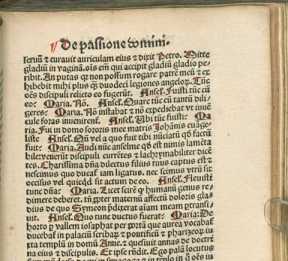 De passione domini.
seruū z curauit auriculam eius z dixit Petro. Mitte
gladiū in vaginā. oīs em̄ qui accipit gladiū gladio pe-
ribit. An putas qr nō possum rogare patrē meū z ex
hibebit mihi plus qz duodeci legiones angelorū. Tūc
oēs discipuli relicto eo fugerūt. Ansel. Fuisti tūc cū
eo: Maria. Nō. Ansel. Quare tūc cū tanti dili-
geres: Maria. Nō instabat z nō expediebat vt mu
foras inuenirent. Ansel. Ubi tūc fuisti: Ma
ria. Fui in domo sororis mee matris Johānis euāge
liste. Ansel. Qñ vel a quo fuit tibi nūciatū qd factū
fuit: Maria. Audi nūc anselme qd est nimis lamēta
bile: venerūt discipuli currētes z lachrymabiliter dicē
tes. Charissima dña dilectus filius tuus captus est z
nescimus quo ducat iam ligatus. nec scimus vtrū sit
occisus vel quid sit actum de eo. Ansel. Fleuisti
tunc dña: Maria. Z licet scirē qr humanū genus re-
dimere deberet. tn̄ propter maternū affectū doloris gladi-
us de quo Symeon pdixerat aīam meam ptransi-
uit. Ansel. Quo tunc ductus fuerat: Maria: De
horto p vallem iosaphat per portā que aurea vocabat̄
ducebat̄ in palaciū scribarū z pontificū z phariseorū qr
sita fuit in domū Anne. z quesiuit annas de doctri
na eius z discipulis. Et ipse rn̄dit. Ego palā locutus